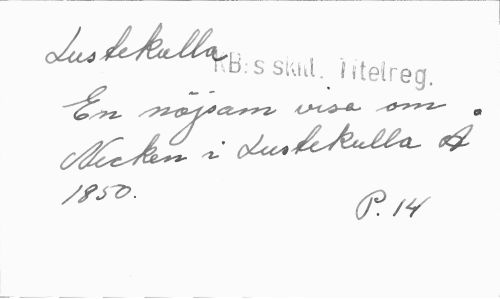 Lustekulla
KB:s skill. Titelreg.
En nöjsam visa om
Necken i Lustekulla Å
1850.
P. 14